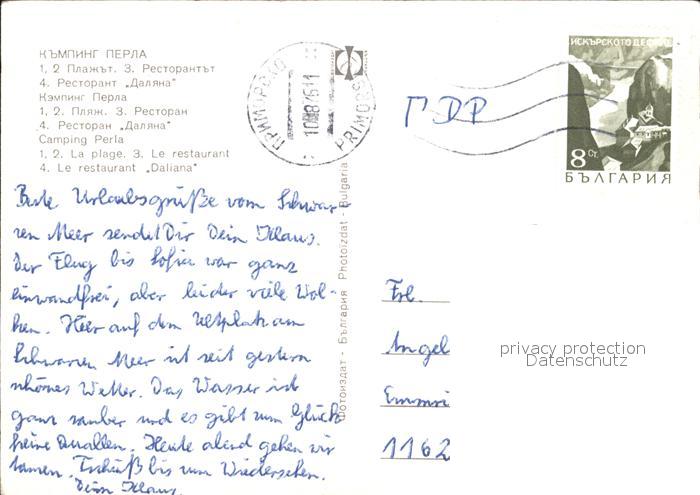 КЪМПИНГ ПЕРЛА
1, 2 Плажът. 3. Ресторантът
4. Ресторант „Даляна"
Кэмпинг Перла
1, 2. Пляж. 3. Ресторан
4. Ресторан „Даляна"
Camping Perla
1, 2. La plage. 3. Le restaurant
4. Le restaurant „Daliana"
Beste Urlaubsgrüße vom Schwar-
zen Meer sendet Dir Dein Klaus.
Der Flug bis Sofia war ganz
einwandfrei, aber leider viele Wol-
ken. Hier auf dem Zeltplatz am
Schwarzen Meer ist seit gestern
schönes Wetter. Das Wasser ist
ganz sauber und es gibt zum Glück
keine Quallen. Heute abend gehen wir
tanzen. Tschüß bis zum Wiedersehen.
Dein Klaus.
Фотоиздат - България Photoizdat - Bulgaria
ПРИМОРСКО
PRIMORSKO
ГДР
ИСКЪРСКОТО ДЕФИЛЕ
8 Ст.
БЪЛГАРИЯ
Frl.
Angel
1162
privacy protection
Datenschutz